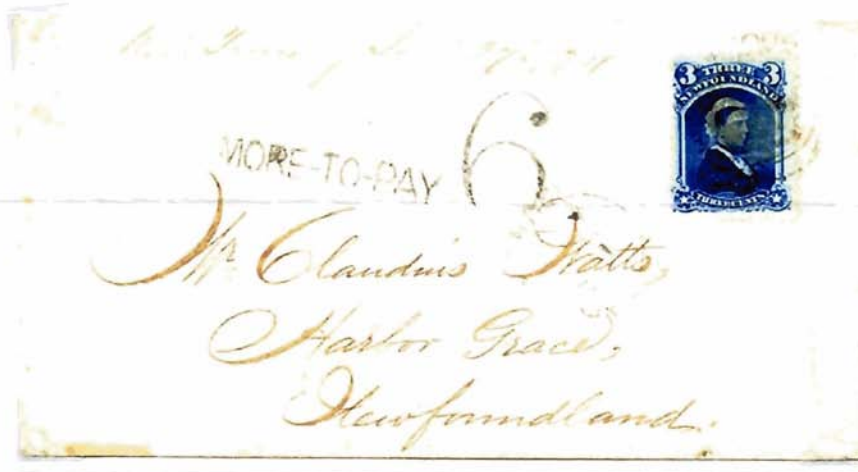 3 THREE 3
NEWFOUNDLAND
THREE CENTS
MORE-TO-PAY 6
Mr Claudius Watts,
Harbor Grace,
Newfoundland.